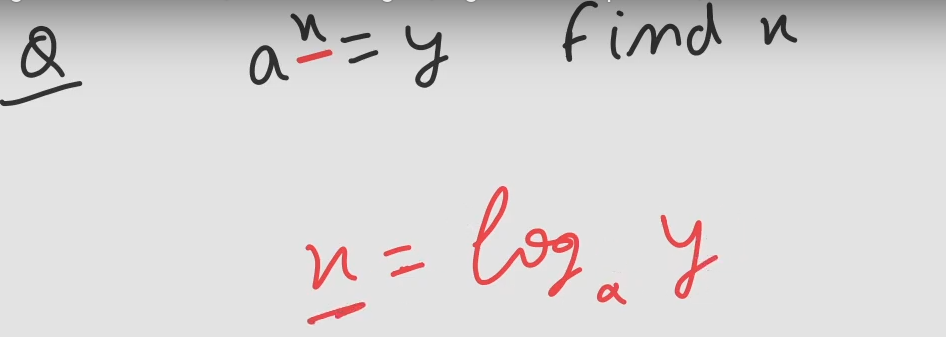 Q a^x = y find x
x = log_a y